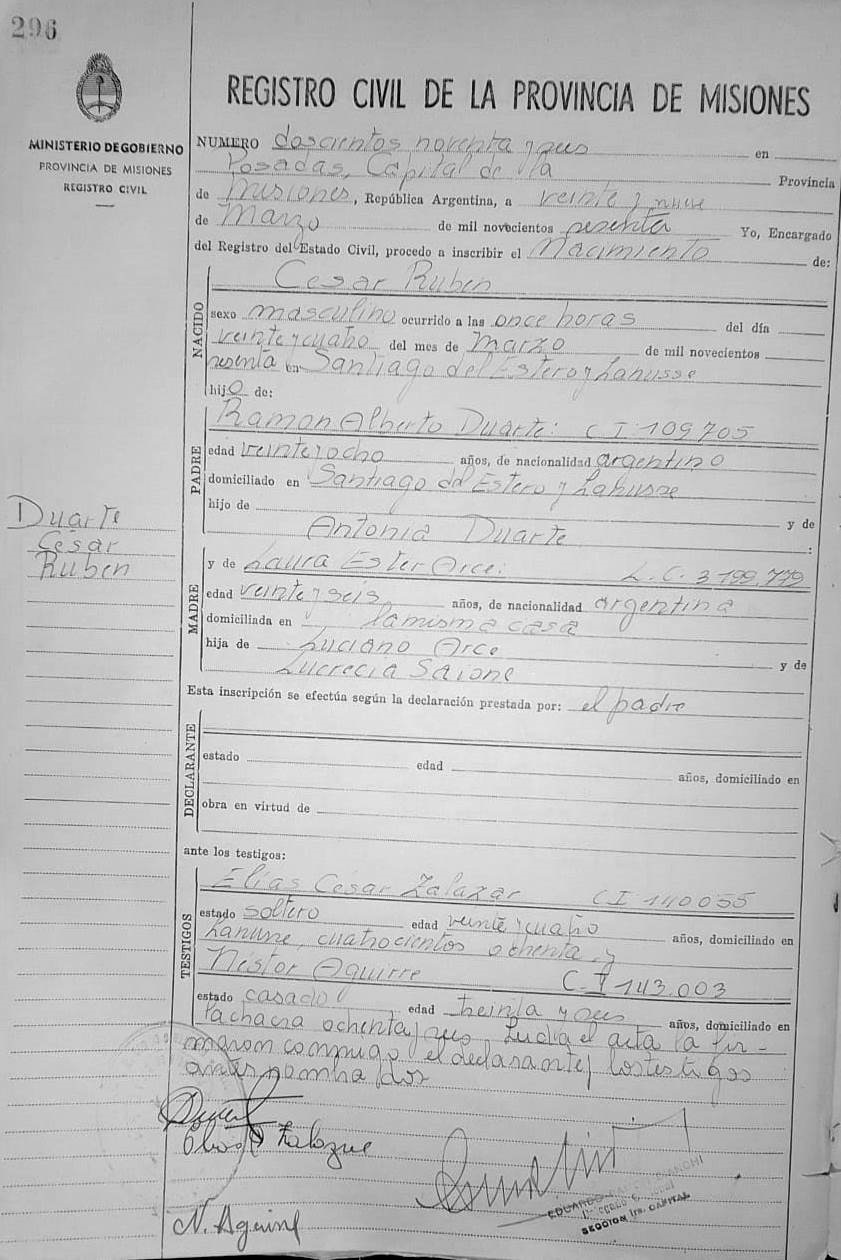 296
MINISTERIO DE GOBIERNO
PROVINCIA DE MISIONES
REGISTRO CIVIL
REGISTRO CIVIL DE LA PROVINCIA DE MISIONES
NUMERO doscientos noventa y seis en
Posadas, Capital de la Provincia
de Misiones, República Argentina, a veinte y nueve
de Marzo de mil novecientos sesenta Yo, Encargado
del Registro del Estado Civil, procedo a inscribir el Nacimiento de:
NACIDO
Cesar Ruben
sexo masculino ocurrido a las once horas del día
veinte y cuatro del mes de Marzo de mil novecientos
sesenta en Santiago del Estero y Lanusse
hijo de:
PADRE
Ramon Alberto Duarte: C I 109705
edad veinte y ocho años, de nacionalidad argentino
domiciliado en Santiago del Estero y Lanusse
hijo de y de
Antonia Duarte :
Duarte
Cesar
Ruben
MADRE
y de Laura Ester Arce: L. C. 3 199.772
edad veinte y seis años, de nacionalidad argentina
domiciliada en la misma casa
hija de Luciano Arce y de
Lucrecia Saione
Esta inscripción se efectúa según la declaración prestada por: el padre
DECLARANTE
estado edad años, domiciliado en
obra en virtud de
ante los testigos:
TESTIGOS
Elías César Zalazar C I 140055
estado soltero edad veinte y cuatro años, domiciliado en
Lanusse, cuatrocientos ochenta y
Nestor Aguirre C. I 143.003
estado casado edad treinta y seis años, domiciliado en
la chacra ochenta y seis Leída el acta la fir-
maron conmigo el declarante y los testigos
antes nombrados
N. Aguirre
EDUARDO
SECCION 1ra. CAPITAL